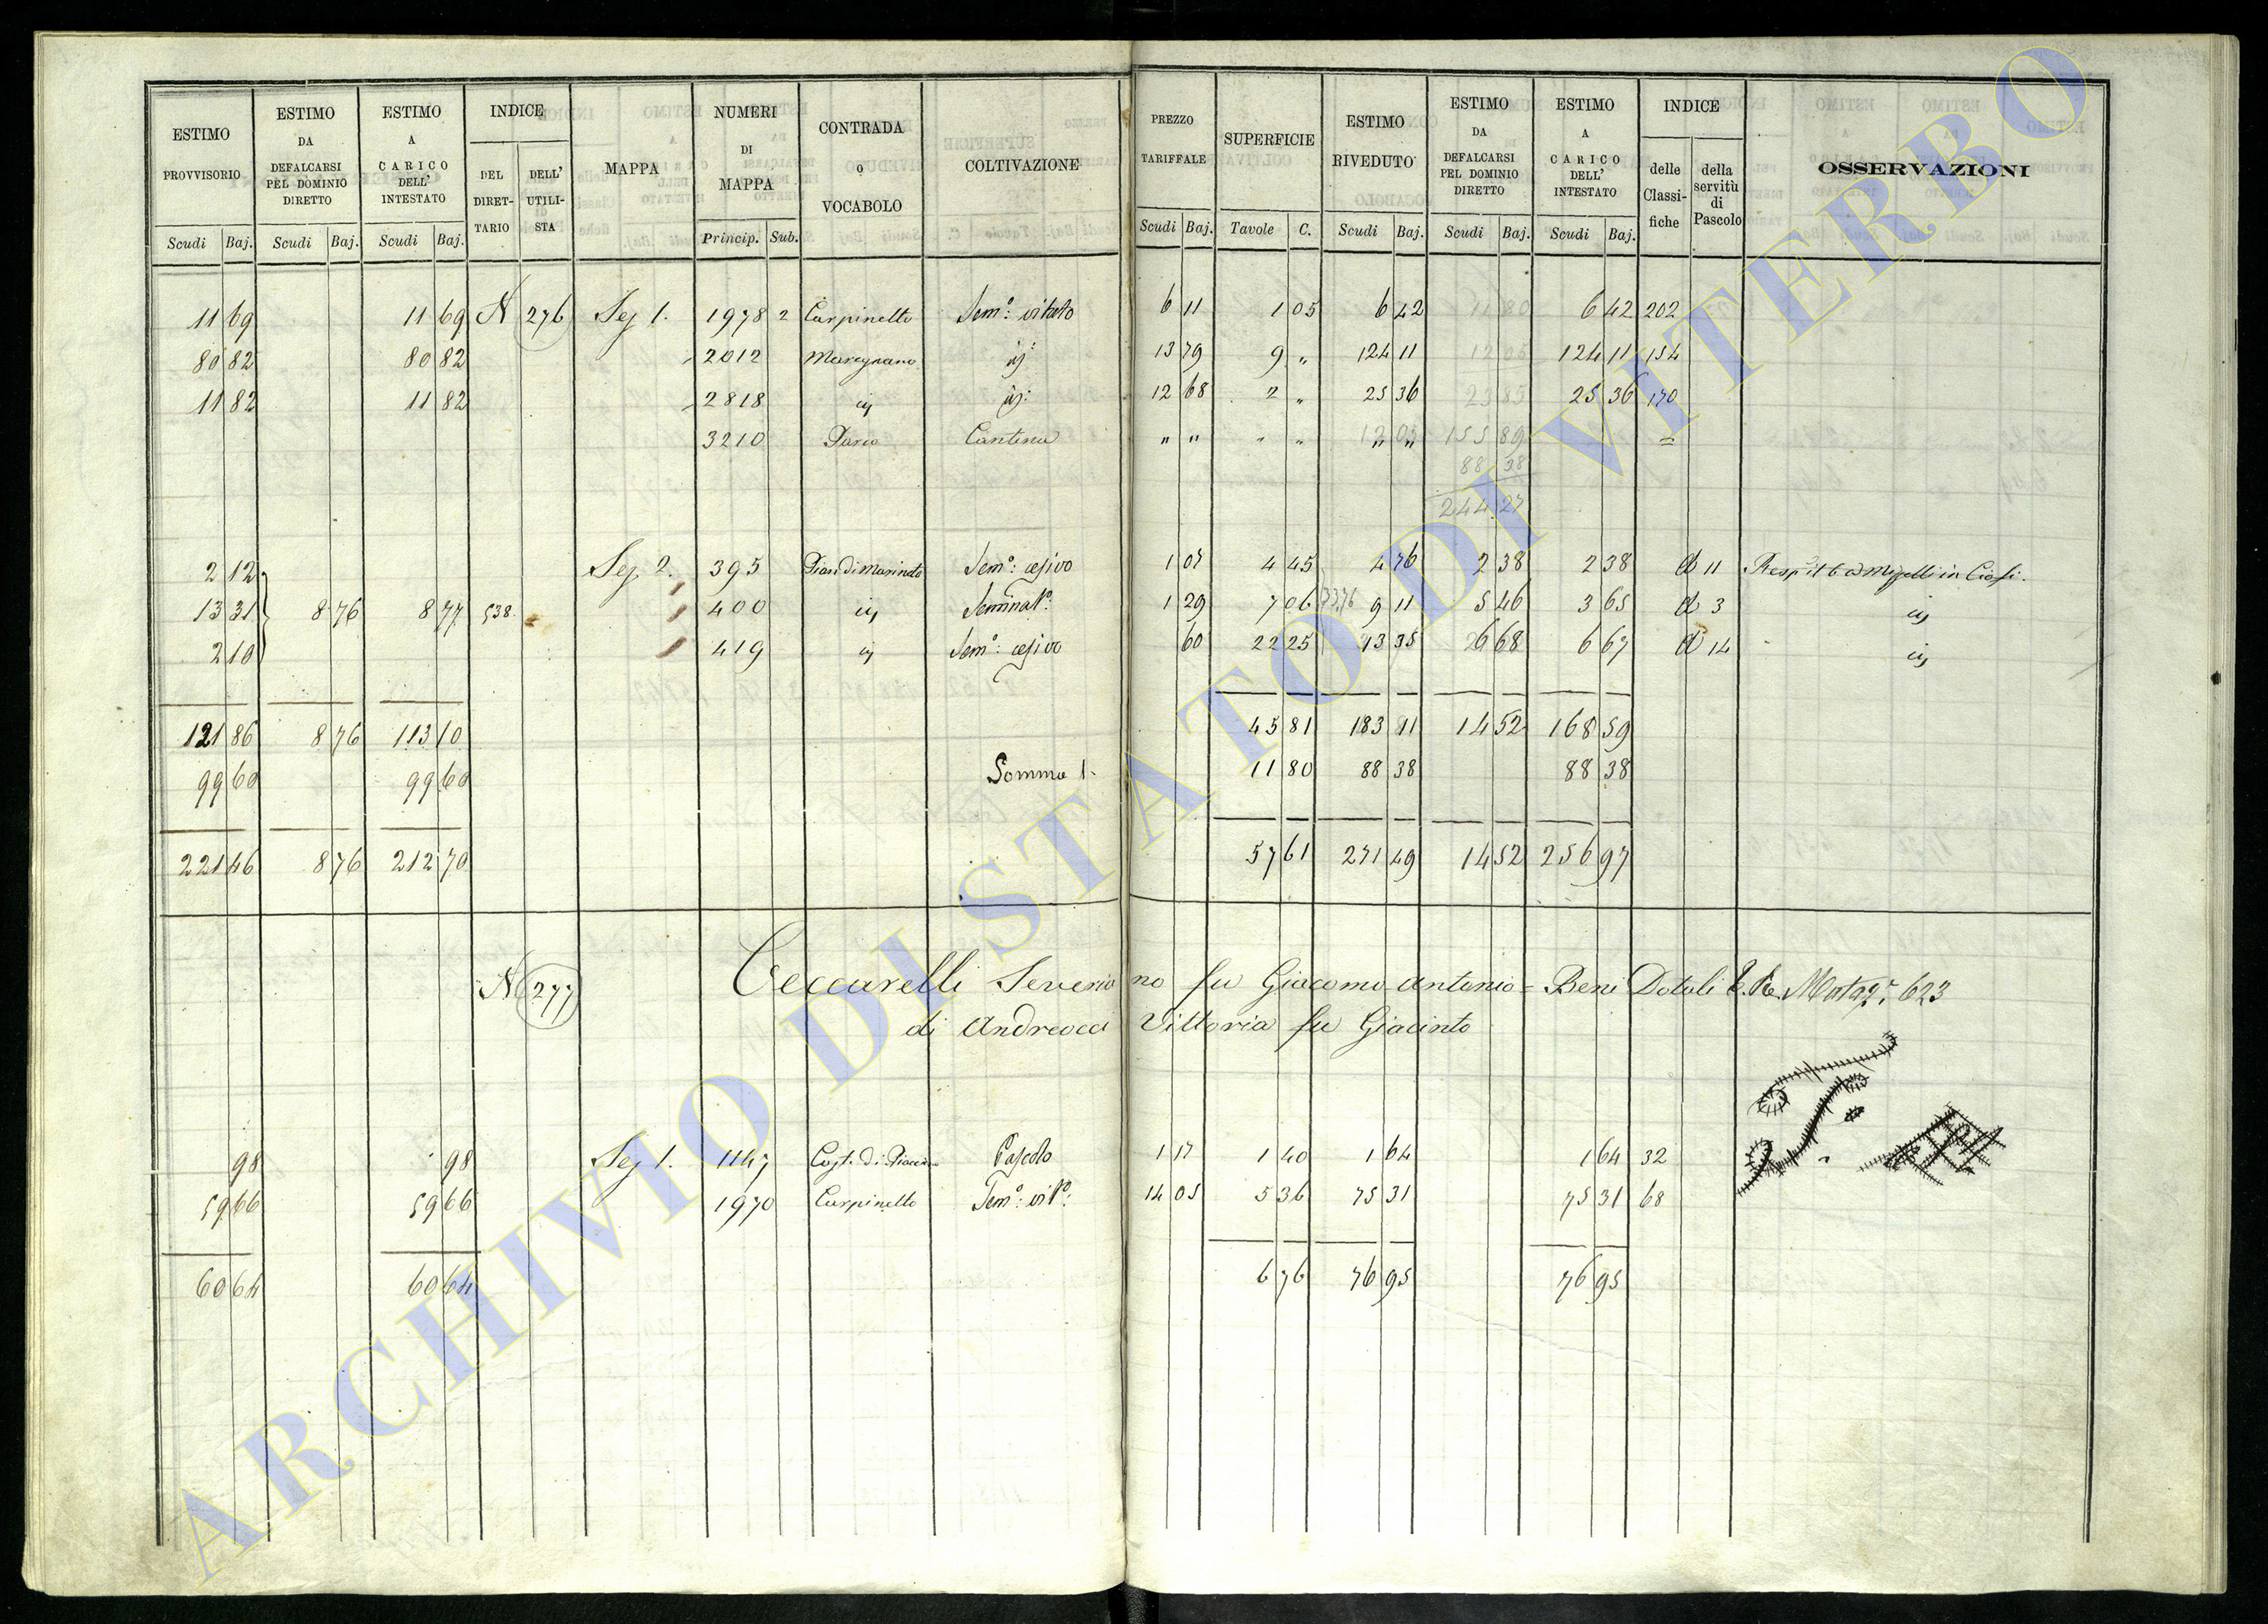 ESTIMO PROVVISORIO | ESTIMO DA DEFALCARSI PEL DOMINIO DIRETTO | ESTIMO A CARICO DELL' INTESTATO | INDICE DEL DIRETTARIO | DELL' UTILISTA | MAPPA | NUMERI DI MAPPA | CONTRADA O VOCABOLO | COLTIVAZIONE | PREZZO TARIFFALE | SUPERFICIE | ESTIMO RIVEDUTO | ESTIMO DA DEFALCARSI PEL DOMINIO DIRETTO | ESTIMO A CARICO DELL' INTESTATO | INDICE delle Classifiche | della servitù di Pascolo | OSSERVAZIONI
Scudi Baj. Scudi Baj. Scudi Baj. Princip. Sub. Scudi Baj. Tavole C. Scudi Baj. Scudi Baj. Scudi Baj.
11 69 11 69 N 276 Sez 1. 1978 2 Carpinetto Sem.o vitato 6 11 1 05 6 42 11 80 6 42 202
80 82 80 82 2012 Maregnano id: 13 79 9 „ 124 11 12 05 124 11 154
11 82 11 82 2818 id id: 12 68 2 „ 25 36 23 85 25 36 170
3210 Cantina „ „ „ „ „ „ 155 89 =
88 38
244 27
2 12 Sez. 2. 395 Sem.o: cesivo 1 07 4 45 4 76 2 38 2 38 d 11
13 31 8 76 8 77 538 400 id Seminat.o 1 29 7 06 9 11 5 46 3 65 d 3 id
2 10 419 id Sem.o: cesivo 60 22 25 13 35 6 68 6 67 d 14 id
121 86 8 76 113 10 45 81 183 11 14 52 168 59
99 60 99 60 Somma 1. 11 80 88 38 88 38
221 46 8 76 212 70 57 61 271 49 14 52 256 97
N 277 Ceccarelli Severiano fu Giacomo Antonio = Beni Dotali 623
di Andreocci Vittoria fu Giacinto
98 98 Sez 1. 1147 Cost. di Pascolo 1 17 1 40 1 64 1 64 32
59 66 59 66 1970 Carpinetto Sem.o: vit.o: 14 05 5 36 75 31 75 31 68
60 64 60 64 6 76 76 95 76 95
ARCHIVIO DI STATO DI VITERBO